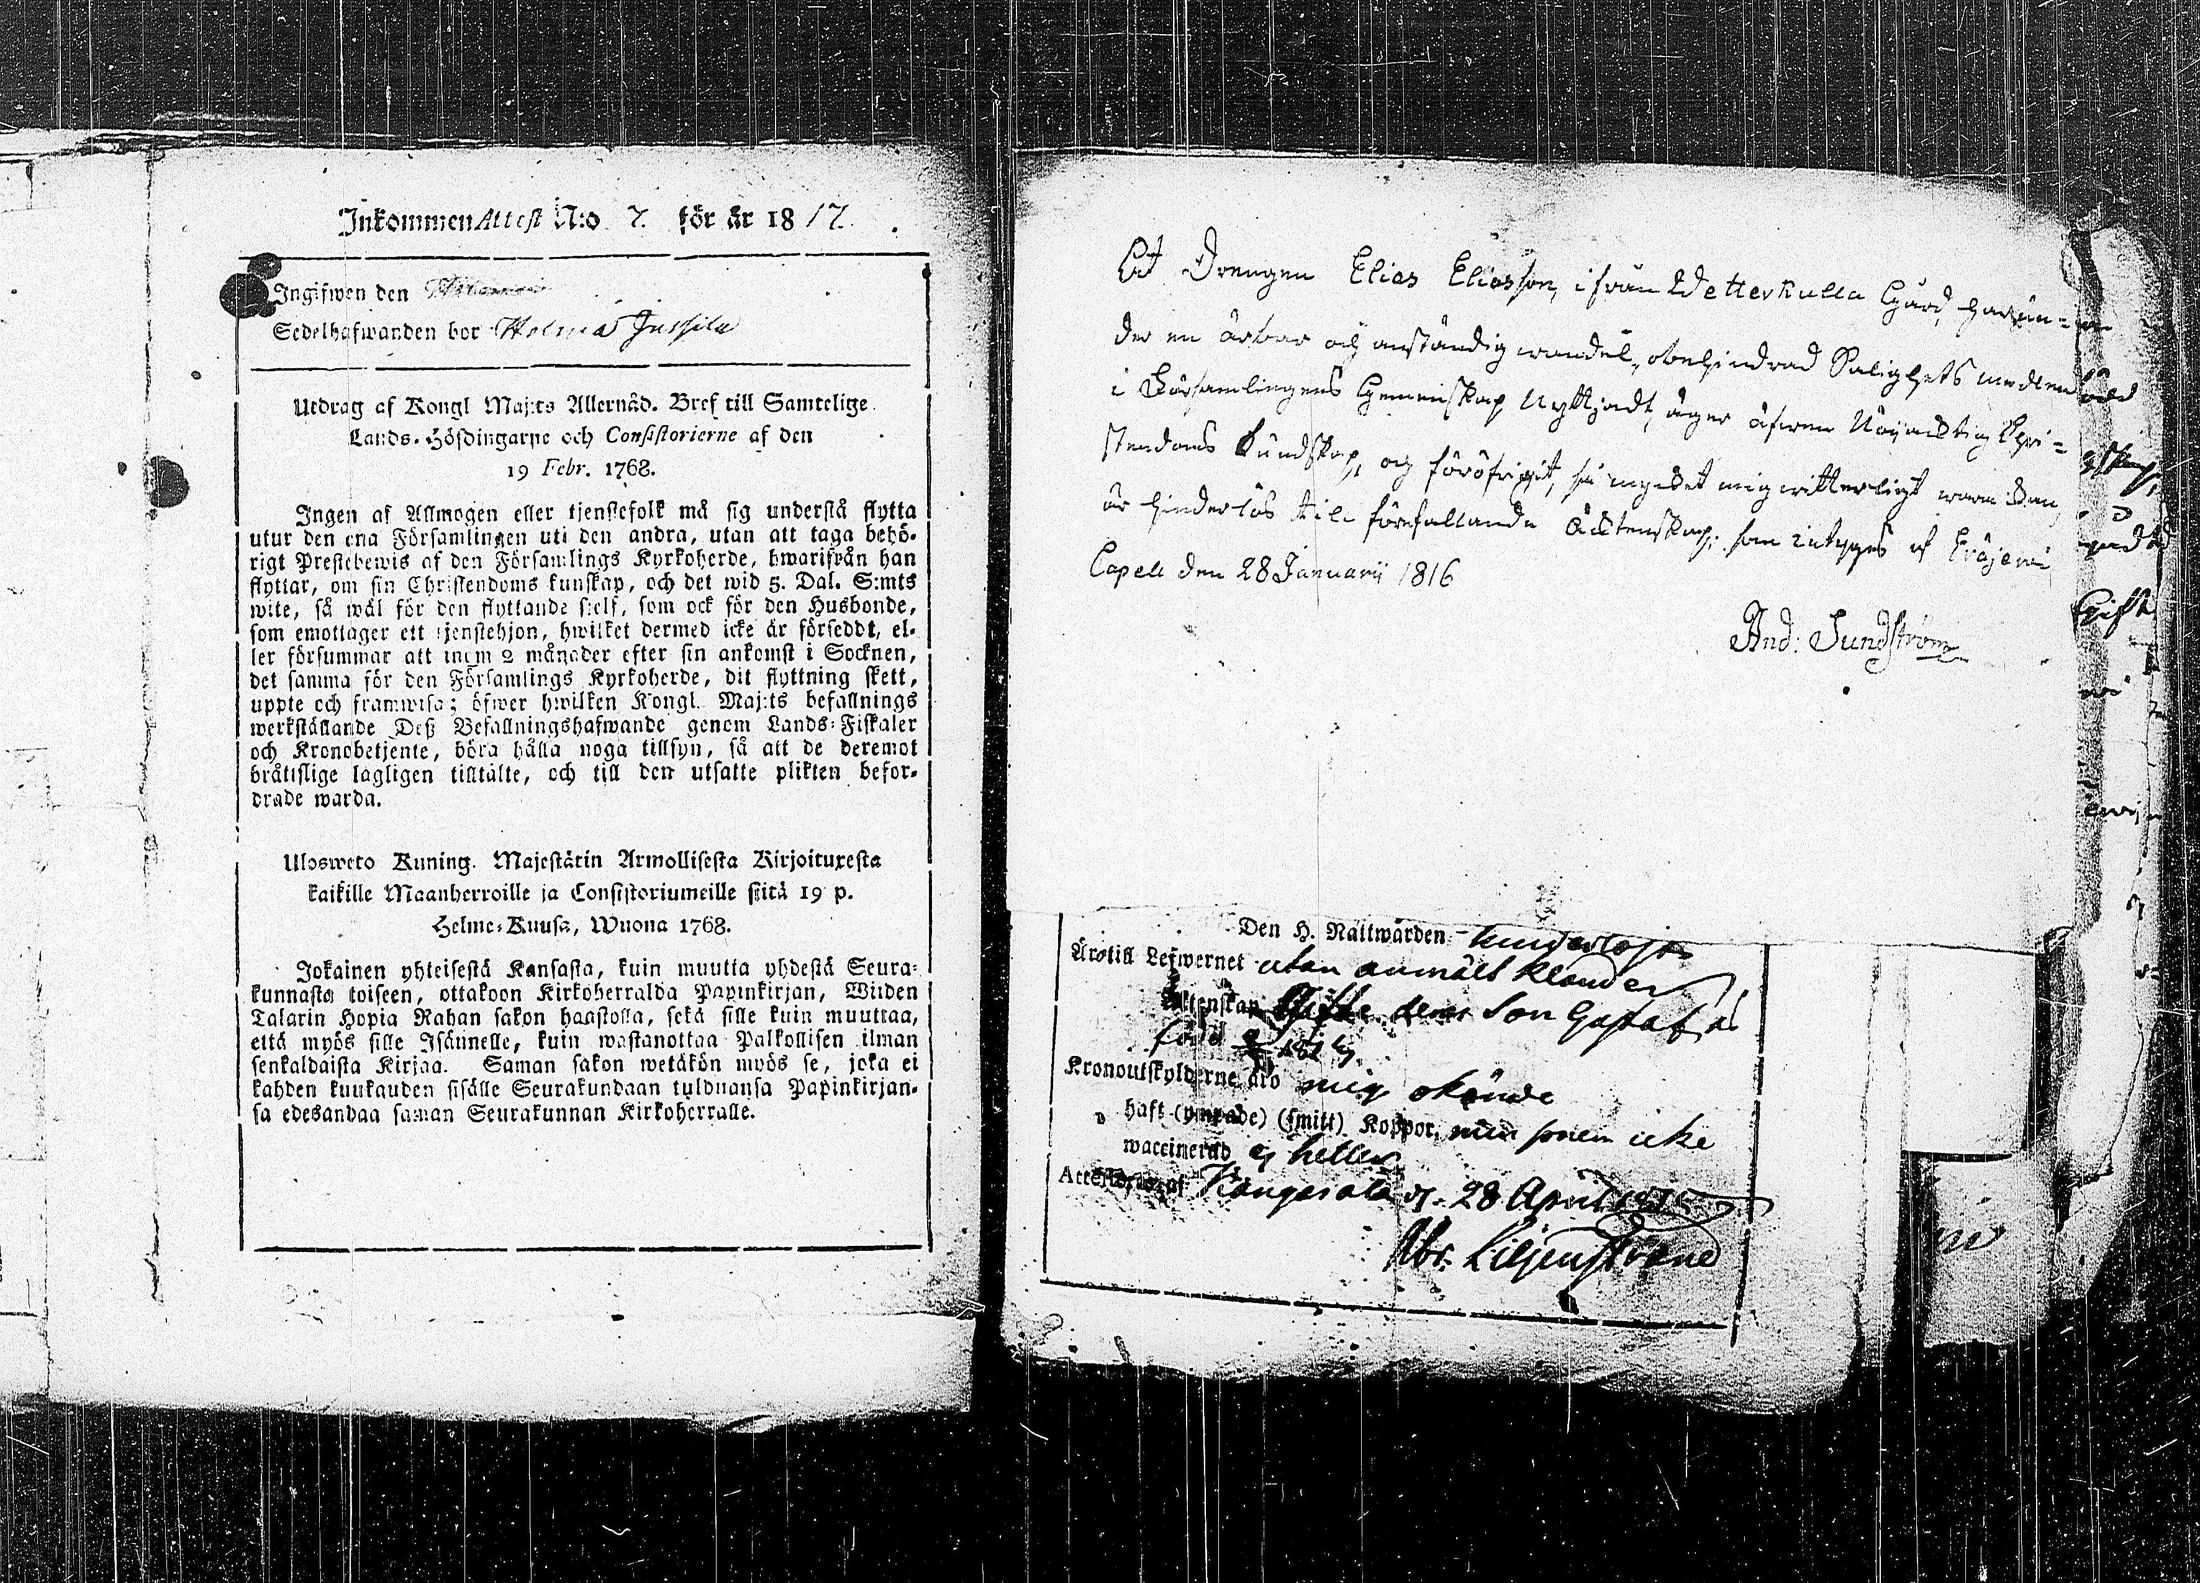 Inkommen Attest N:o 7. för år 1817.
Ingifwen den
Sedelhafwanden bor Holma Jussila
Utdrag af Kongl Maj:ts Allernåd. Bref till Samtelige
Lands-Höfdingarne och Consistorierne af den
19 Febr. 1768.
Ingen af Allmogen eller tjenstefolk må sig understå flytta
utur den ena Församlingen uti den andra, utan att taga behö-
rigt Prestebewis af den Församlings Kyrkoherde, hwarifrån han
flyttar, om sin Christendoms kunskap, och det wid 5. Dal. S:mts
wite, så wäl för den flyttande sielf, som ock för den Husbonde,
som emottager ett tjenstehjon, hwilket dermed icke är försedd​t, el-
ler försummar att inom 2 månader efter sin ankomst i Socknen,
det samma för den Församlings Kyrkoherde, dit flyttning skett,
uppte och framwisa; öfwer hwilken Kongl. Maj:ts befallnings
werkställande Deß Befallningshafwande genom Lands-Fiskaler
och Kronobetjente, böra hålla noga tillsyn, så att de deremot
bråtislige lagligen tilltälte, och till den utsatte plikten befor-
drade warda.
Ulosweto Kuning. Majestätin Armollisesta Kirjoituxesta
kaikille Maanherroille ja Consistoriumeille siitä 19 p.
Helme-Kuusa, Wuona 1768.
Jokainen yhteisestä Kansasta, kuin muutta yhdestä Seura-
kunnasta toiseen, ottakoon Kirkoherralda Papinkirjan, Wiiden
Talarin Hopia Rahan sakon haastolla, sekä sille kuin muuttaa,
että myös sille Isännelle, kuin wastanottaa Palkollisen ilman
senkaldaista Kirjaa. Saman sakon wetäkön myös se, joka ei
kahden kuukauden sisälle Seurakundaan tulduansa Papinkirjan-
sa edesandaa saman Seurakunnan Kirkoherralle.
At Drengen Elias Eliasson, ifrån Wetterkulla Gård, har un-
der en ärbar och anständig wandel, obehindrad Salighets medlen
i Församlingens Gemenskap Nyttjadt, äger äfwen Nöjacktig Chri-
stendoms Kundskap, och föröfrigit, så mycket mig witterligt warn kan,
är hinderlös till förefallande Äcktenskap; som intyges af Eräjerwi
Capell den 28 Januarii 1816
And: Sundström
Den H. Nattwarden hinderlöst
Äro till Lefwernet utan anmält klander
Äktenskap Gifte. deras Son Gustaf är
född
Kronoutskylderne äro mig okände
haft (ympade) (smitt) Koppor, men sonen icke
waccinerad ej heller
Attesteras af Kangasala d. 28 April 1815
Abr. Liljenstrand